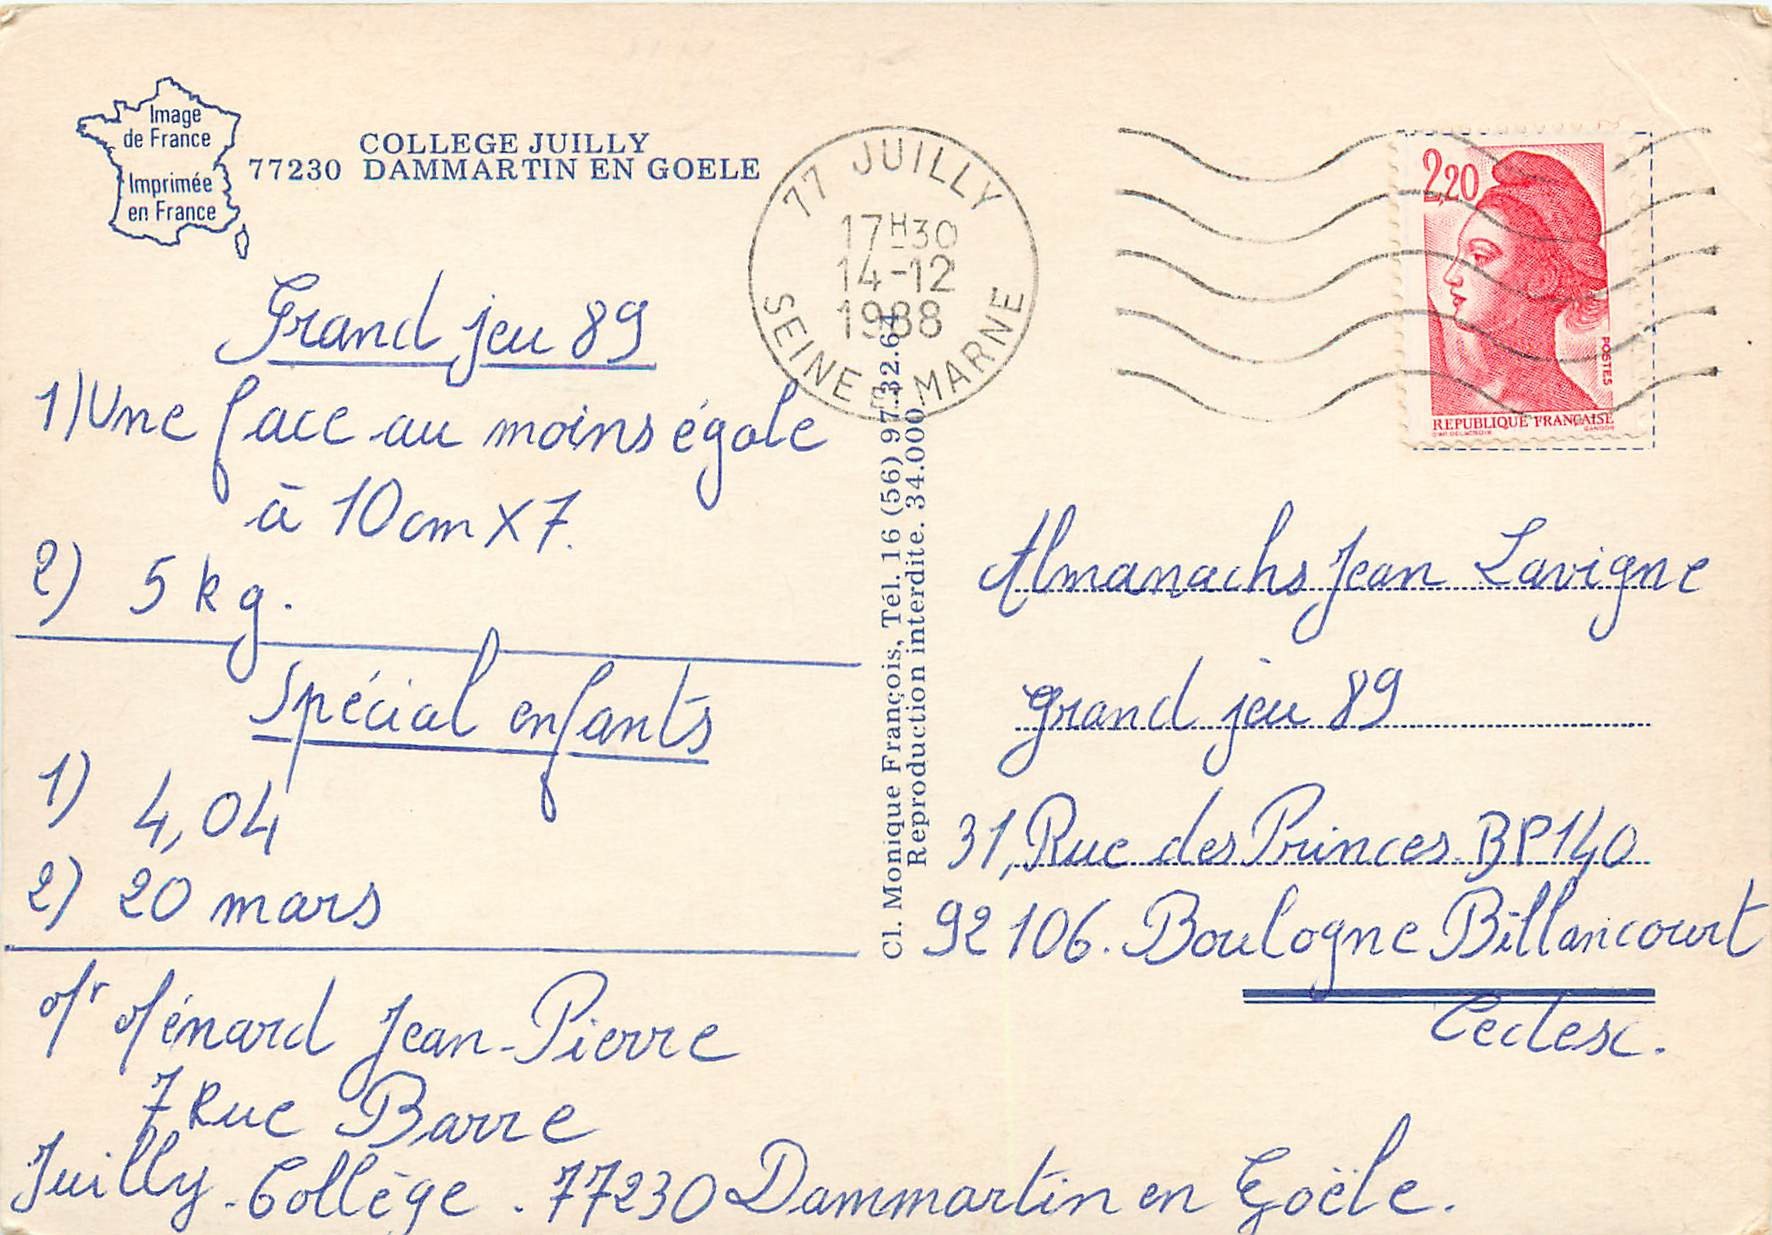 Image
de France
Imprimée
en France
COLLEGE JUILLY
77230 DAMMARTIN EN GOELE
77 JUILLY
17H30
14-12
1988
SEINE E MARNE
2,20
POSTES
REPUBLIQUE FRANÇAISE
Grand jeu 89
1) Une face au moins égale
à 10cm x 7.
2) 5 kg.
Spécial enfants
1) 4,04
2) 20 mars
Mr Ménard Jean-Pierre
7 Rue Barre
Juilly - Collège . 77230 Dammartin en Goële.
Cl. Monique François, Tél. 16 (56) 97.32.64
Reproduction interdite. 34.000
Almanachs Jean Lavigne
grand jeu 89
31, Rue des Princes. BP 140
92106. Boulogne Billancourt
Cedex.